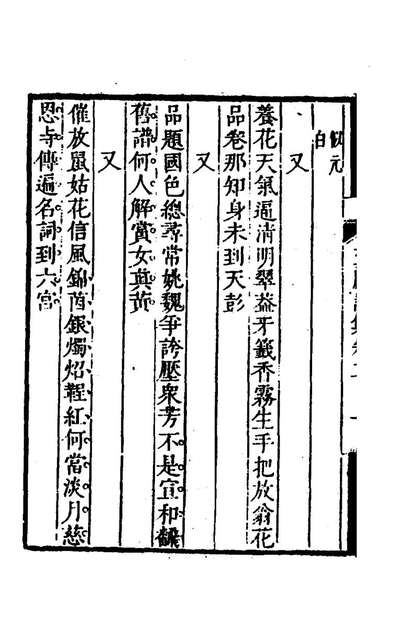 元
白
又
養花天氣逼清明翠盎牙籤香霧生手把放翁花
品卷那知身未到天彭
又
品題國色總尋常姚魏爭誇壓衆芳不是宣和翻
舊譜何人解賞女真黃
又
催放鼠姑花信風錦茵銀燭炤鞓紅何當淡月慈
恩寺傳遍名詞到六宮